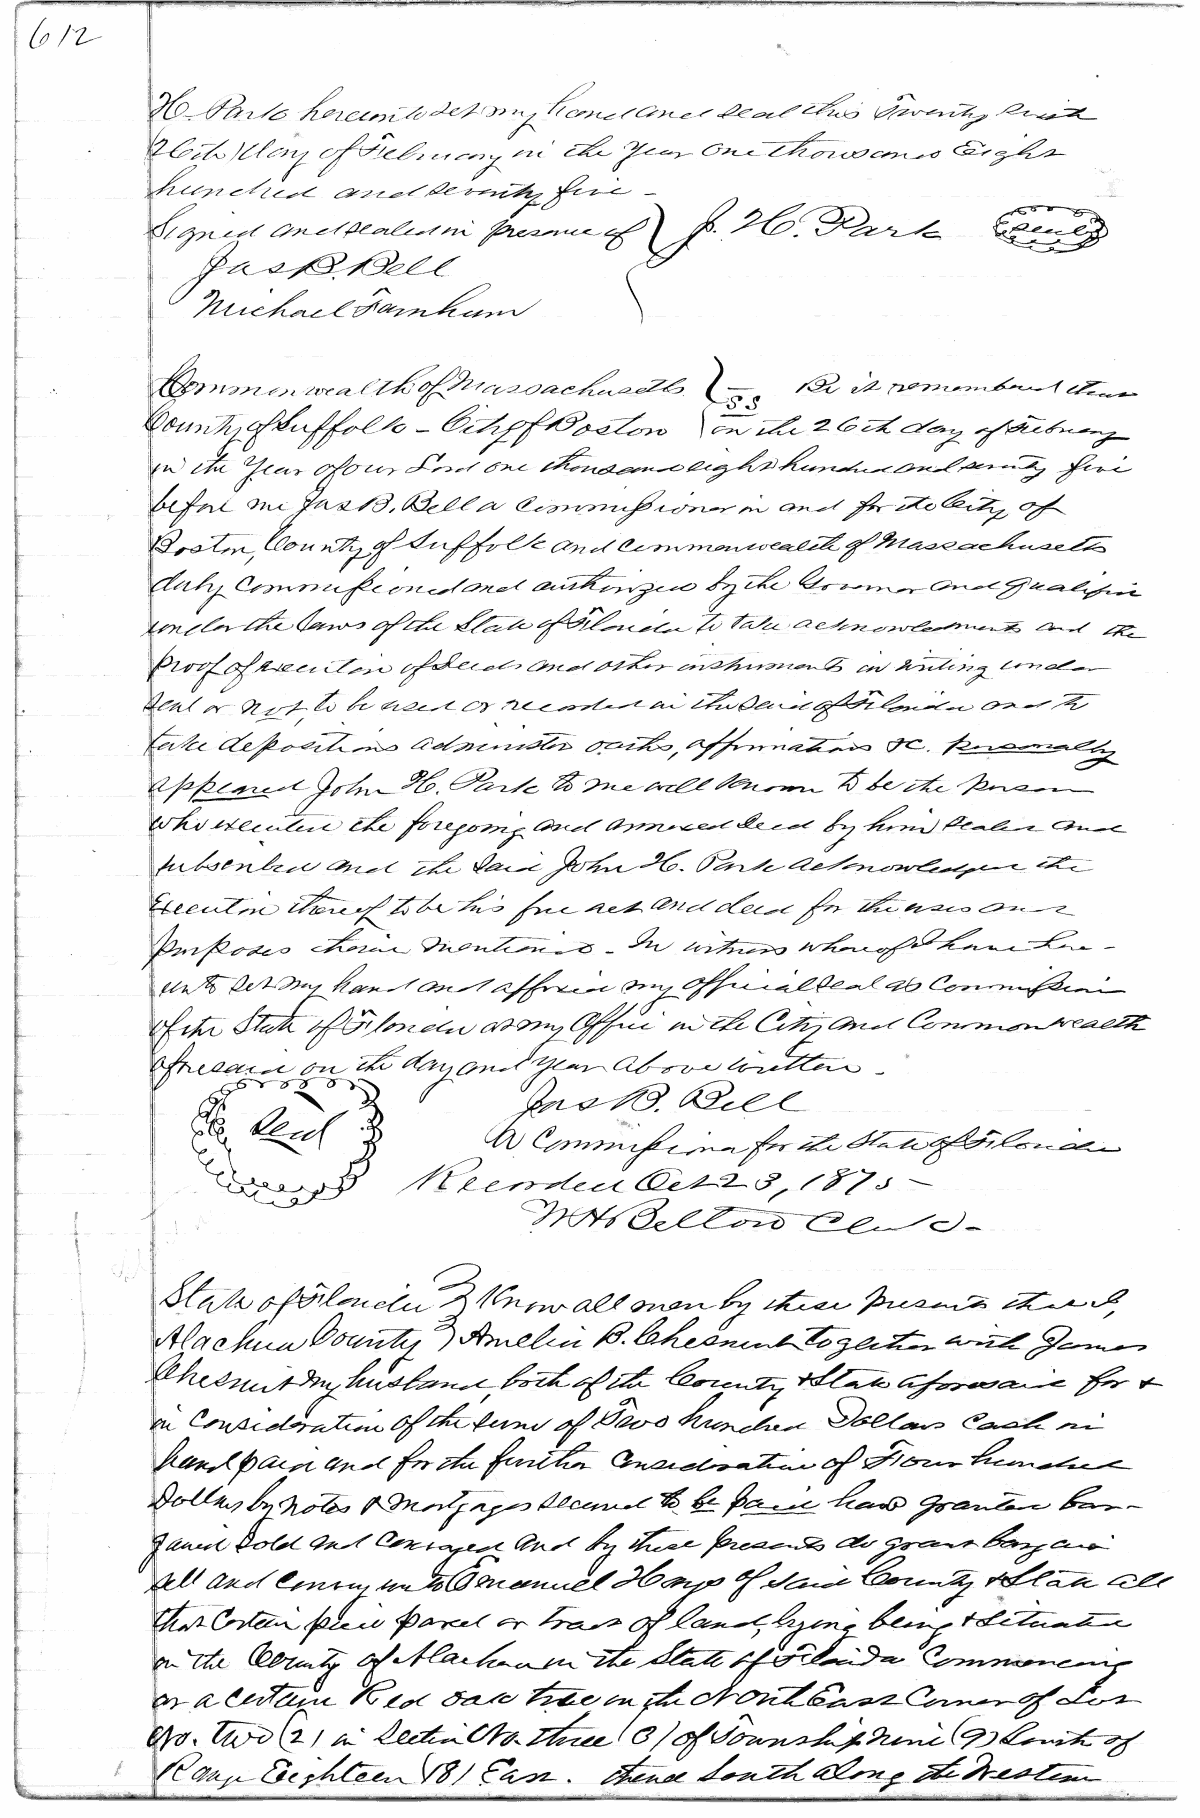 612
H. Park hereunto set my hand and seal this Twenty sixth
26th) day of February in the Year One thousand Eight
hundred and seventy five -
Signed and sealed in presence of } J. H. Park (Seal)
Jas B. Bell
Michael Farnham
Commonwealth of Massachusetts } ss Be it remembered that
County of Suffolk - City of Boston on the 26th day of February
in the Year of our Lord one thousand eight hundred and seventy five
before me Jas B. Bell a Commissioner in and for the City of
Boston, County of Suffolk and Commonwealth of Massachusetts
duly Commissioned and authorized by the Governor and qualified
under the Laws of the State of Florida to take acknowledgments and the
proof of execution of Deeds and other instruments in writing under
seal or not, to be used or recorded in the said of Florida and to
take depositions administer oaths, affirmations &c. personally
appeared John H. Park to me well known to be the person
who executed the foregoing and annexed Deed by him sealed and
subscribed and the said John H. Park acknowledged the
Execution thereof to be his free act and deed for the uses and
purposes therein mentioned - In witness whereof I have here-
unto set my hand and affixed my official seal as Commission
of the State of Florida at my Office in the City and Commonwealth
aforesaid on the day and year above written -
Seal Jas B. Bell
A Commissioner for the State of Florida
Recorded Oct 23, 1875 -
W H Belton Clerk -
State of Florida } Know all men by these presents that I,
Alachua County } Amelia B. Chesnut together with James
Chesnut my husband, both of the County & State aforesaid for &
in Consideration of the sum of Two hundred Dollars Cash in
hand paid and for the further Consideration of Four hundred
Dollars by notes & mortgages secured to be paid have granted bar-
gained sold and Conveyed and by these presents do grant bargain
sell and Convey unto Emanuel Hays of said County & State all
that Certain piece parcel or tract of land, lying being & situated
in the County of Alachua in the State of Florida Commencing
at a certain Red oak tree in the North East Corner of Lot
No. two (2) in Section No. three (3) of Township Nine (9) South of
Range Eighteen (18) East. thence South along the Western